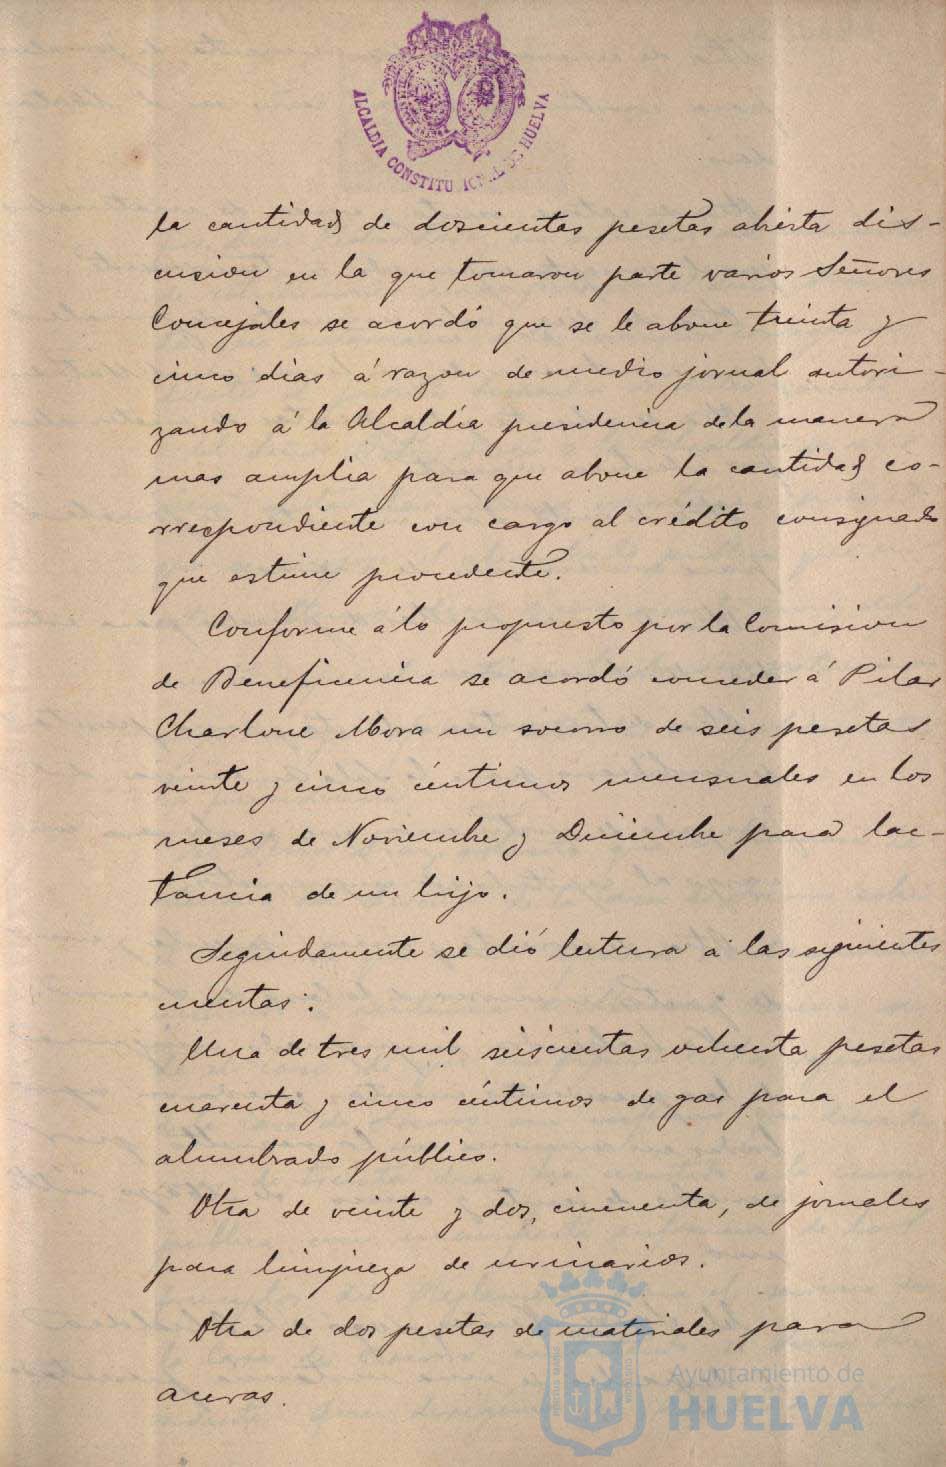 ALCALDIA CONSTITUCIONAL DE HUELVA
la cantidad de doscientas pesetas abierta dis-
cusion en la que tomaron parte varios Señores
Concejales se acordó que se le abone treinta y
cinco dias á razon de medio jornal autori-
zando á la Alcaldía presidencia de la manera
mas amplia para que abone la cantidad co-
rrespondiente con cargo al crédito consignado
que estime procedente.
Conforme á lo propuesto por la Comision
de Beneficencia se acordó conceder á Pilar
Charlone Mora un socorro de seis pesetas
veinte y cinco céntimos mensuales en los
meses de Noviembre y Diciembre para lac-
tancia de un hijo.
Seguidamente se dió lectura á las siguientes
cuentas:
Una de tres mil seiscientas ochenta pesetas
cuarenta y cinco céntimos de gas para el
alumbrado público.
Otra de veinte y dos, cincuenta, de jornales
para limpieza de urinarios.
Otra de dos pesetas de materiales para
aceras.
Ayuntamiento de
HUELVA